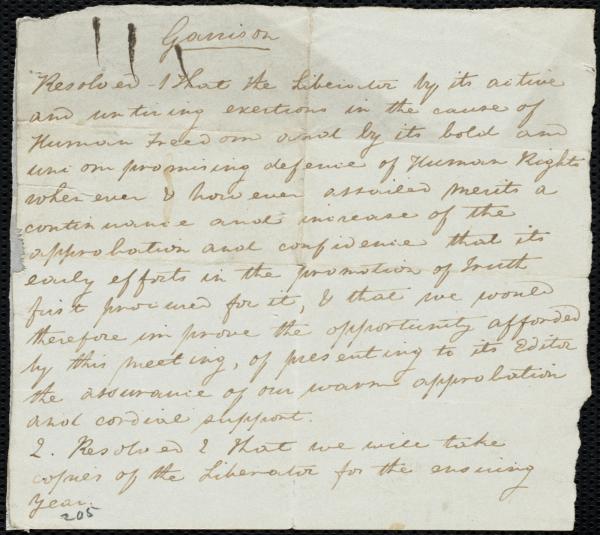 Garrison
Resolved - 1 That the Liberator by its active
and untiring exertions in the cause of
Human Freedom and by its bold and
uncompromising defence of Human Rights
whenever & however assailed merits a
continuance and increase of the
approbation and confidence that its
early efforts in the promotion of Truth
first procured for it, & that we would
therefore improve the opportunity afforded
by this meeting, of presenting to its Editor
the assurance of our warm approbation
and cordial support.
2. Resolved 2 That we will take
copies of the Liberator for the ensuing
year.
205